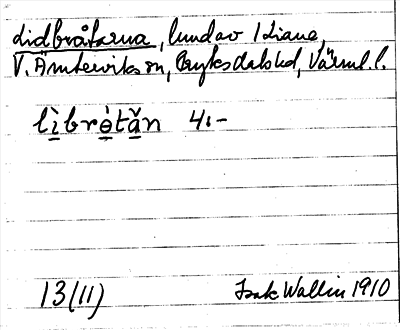 lidbråtarna, lund av Kiane,
V. Ämtervik sn, Fryksdals hd, Värml. l.
lìbrètǎn 4:-
13(11) Isak Wallin 1910